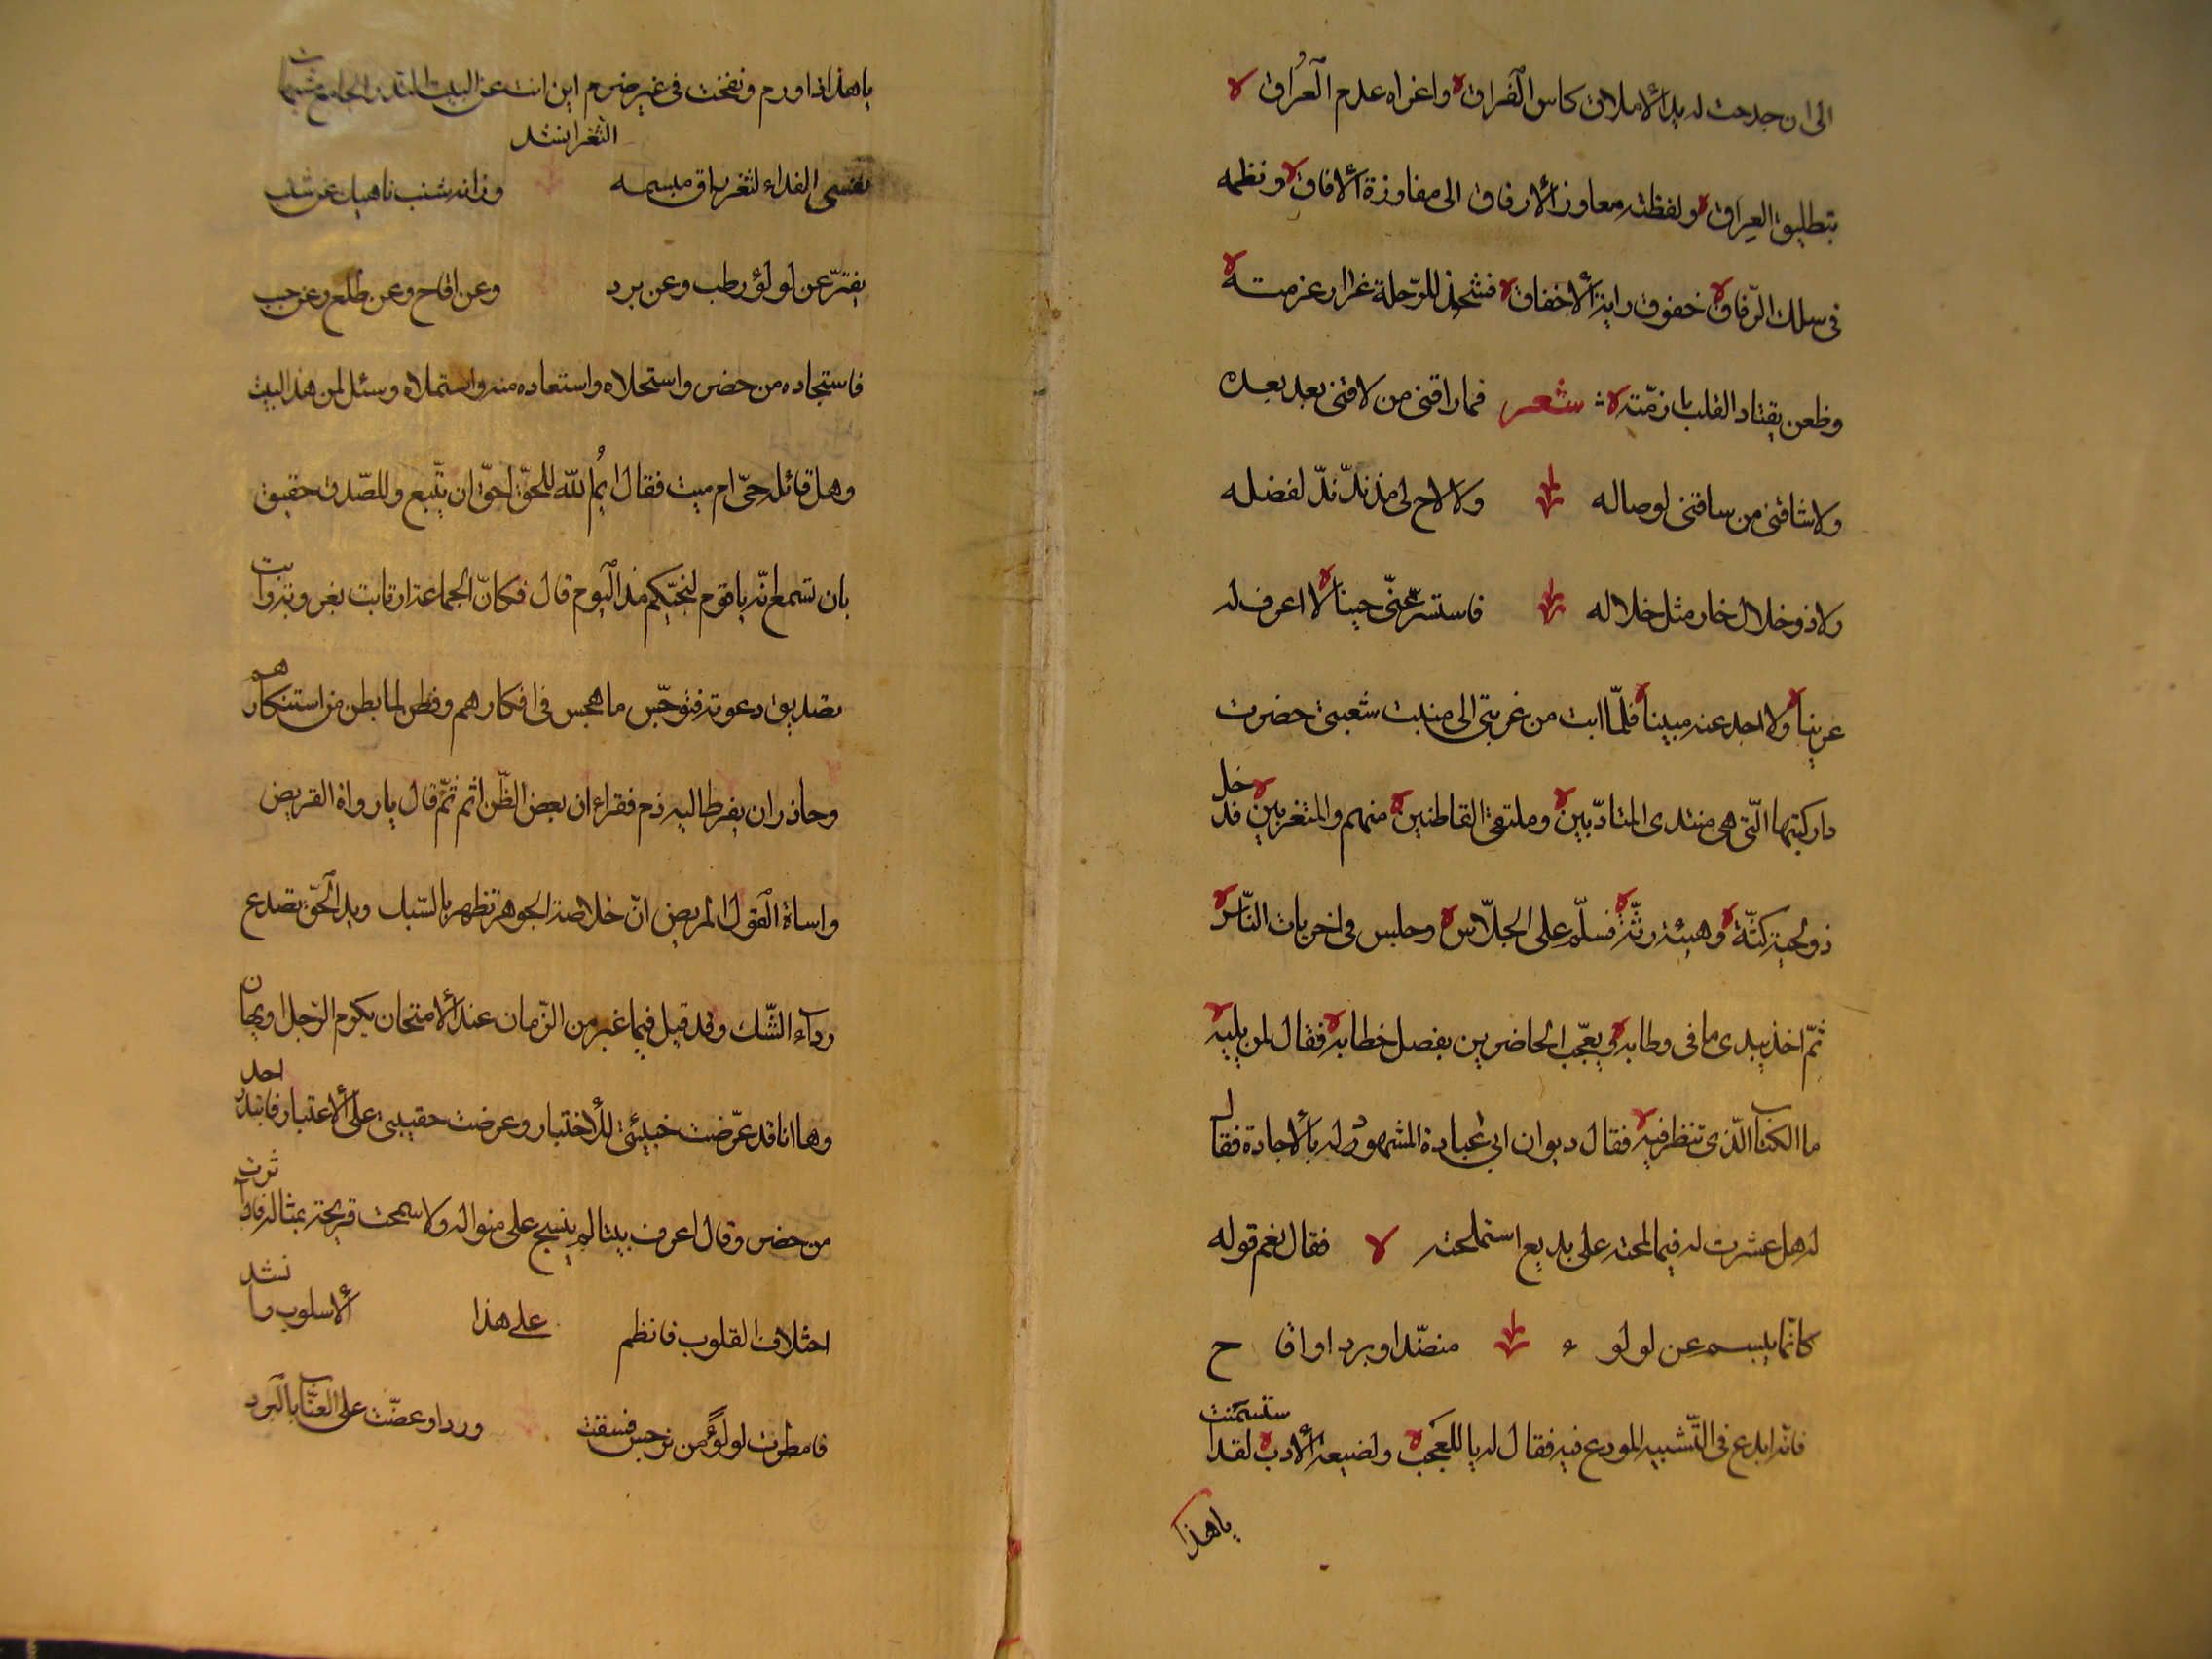 الى ان جدحت له يد الأملاق كاس الفراق واغراه عدم العُراق
بتطليق العِراق ولفظته معاوز الأرفاق الى مفاوزة الأفاق ونظمه
فى سلك الرّفاق خفوق راية الأخفاق فشحذ للرّحلة غرار عزمته
وظعن يقتاد القلب بازمّته شعر فما راقنى من لاقنى بعد بعده
ولا شاقنى من ساقنى لوصاله ولا لاح لى مذ ندّ ندّ لفضله
ولا ذو خلال حاز مثل خلاله فاستسرّ عنّى حينا لا اعرف له
عرينا ولا اجد عنه مبينا فلمّا ابت من غربتى الى منبت شعبتى حضرت
دار كتبها الّتى هى منتدى المتادّبين وملتقى القاطنين منهم والمتغربين فدخل
ذو لحية كثّة وهيئة رثّة فسلّم على الجلّاس وجلس فى اخريات النّاس
ثمّ اخذ يبدى ما فى وطابه ويعجّب الحاضرين بفصل خطابه فقال لمن يليه
ما الكتاب الّذى تنظر فيه فقال ديوان ابى عبادة المشهود له بالأجادة فقال
له هل عشرت له فيما لمحته على بديع استملحته فقال نعم قوله
كانّما يبسم عن لولو ء منضّد او برد او اقا ح
فانّه ابدع فى التّشبيه المودع فيه فقال له يا للعجب ولضيعة الأدب لقد استسمنت
يا هذا
يا هذا ذا ورم ونفخت فى غير ضرم اين انت عن البيت النّدر الجامع مشبهات
الثّغر انشد
نفسى الفداء لثغر راق مبسمه وزانه شنب ناهيك عن شنب
يفترّ عن لولؤ رطب وعن برد وعن اقاح وعن طلع وعن حبب
فاستجاده من حضر واستحلاه واستعاده منه واستملاه وسئل لمن هذا البيت
وهل قائله حىّ ام ميت فقال ايمُ الله للحقّ احقّ ان يتّبع وللصّدق حقيق
بان تسمع انّه يا قوم لنجيّكم مذ اليوم قال فكانّ الجماعة ارتابت بعزوته وابت
تصديق دعوته فتوجّس ما هجس فى افكارهم وفطن لما بطن من استنكارهم
وحاذر ان يفرط اليه ذم فقراء ان بعض الظّن اثم ثمّ قال يا رواة القريض
واساة القول المريض انّ خلاصة الجوهر تظهر بالسّبك ويد الحقّ تصدع
ردآء الشّك وقد قيل فيما غبر من الزّمان عند الأمتحان يكرم الرّجل او يهان
وها انا قد عرّضت خبيئتى للأختبار وعرضت حقيبتى على الأعتبار فابتدر احد
من حضر وقال اعرف بيتا لم ينسج على منواله ولا سمحت قريحة بمثاله فان اثرت
اختلاف القلوب فانظم على هذا الأسلوب وانشد
فامطرت لولوءً من نرجس فسقت وردا وعضّت على العنّاب بالبرد